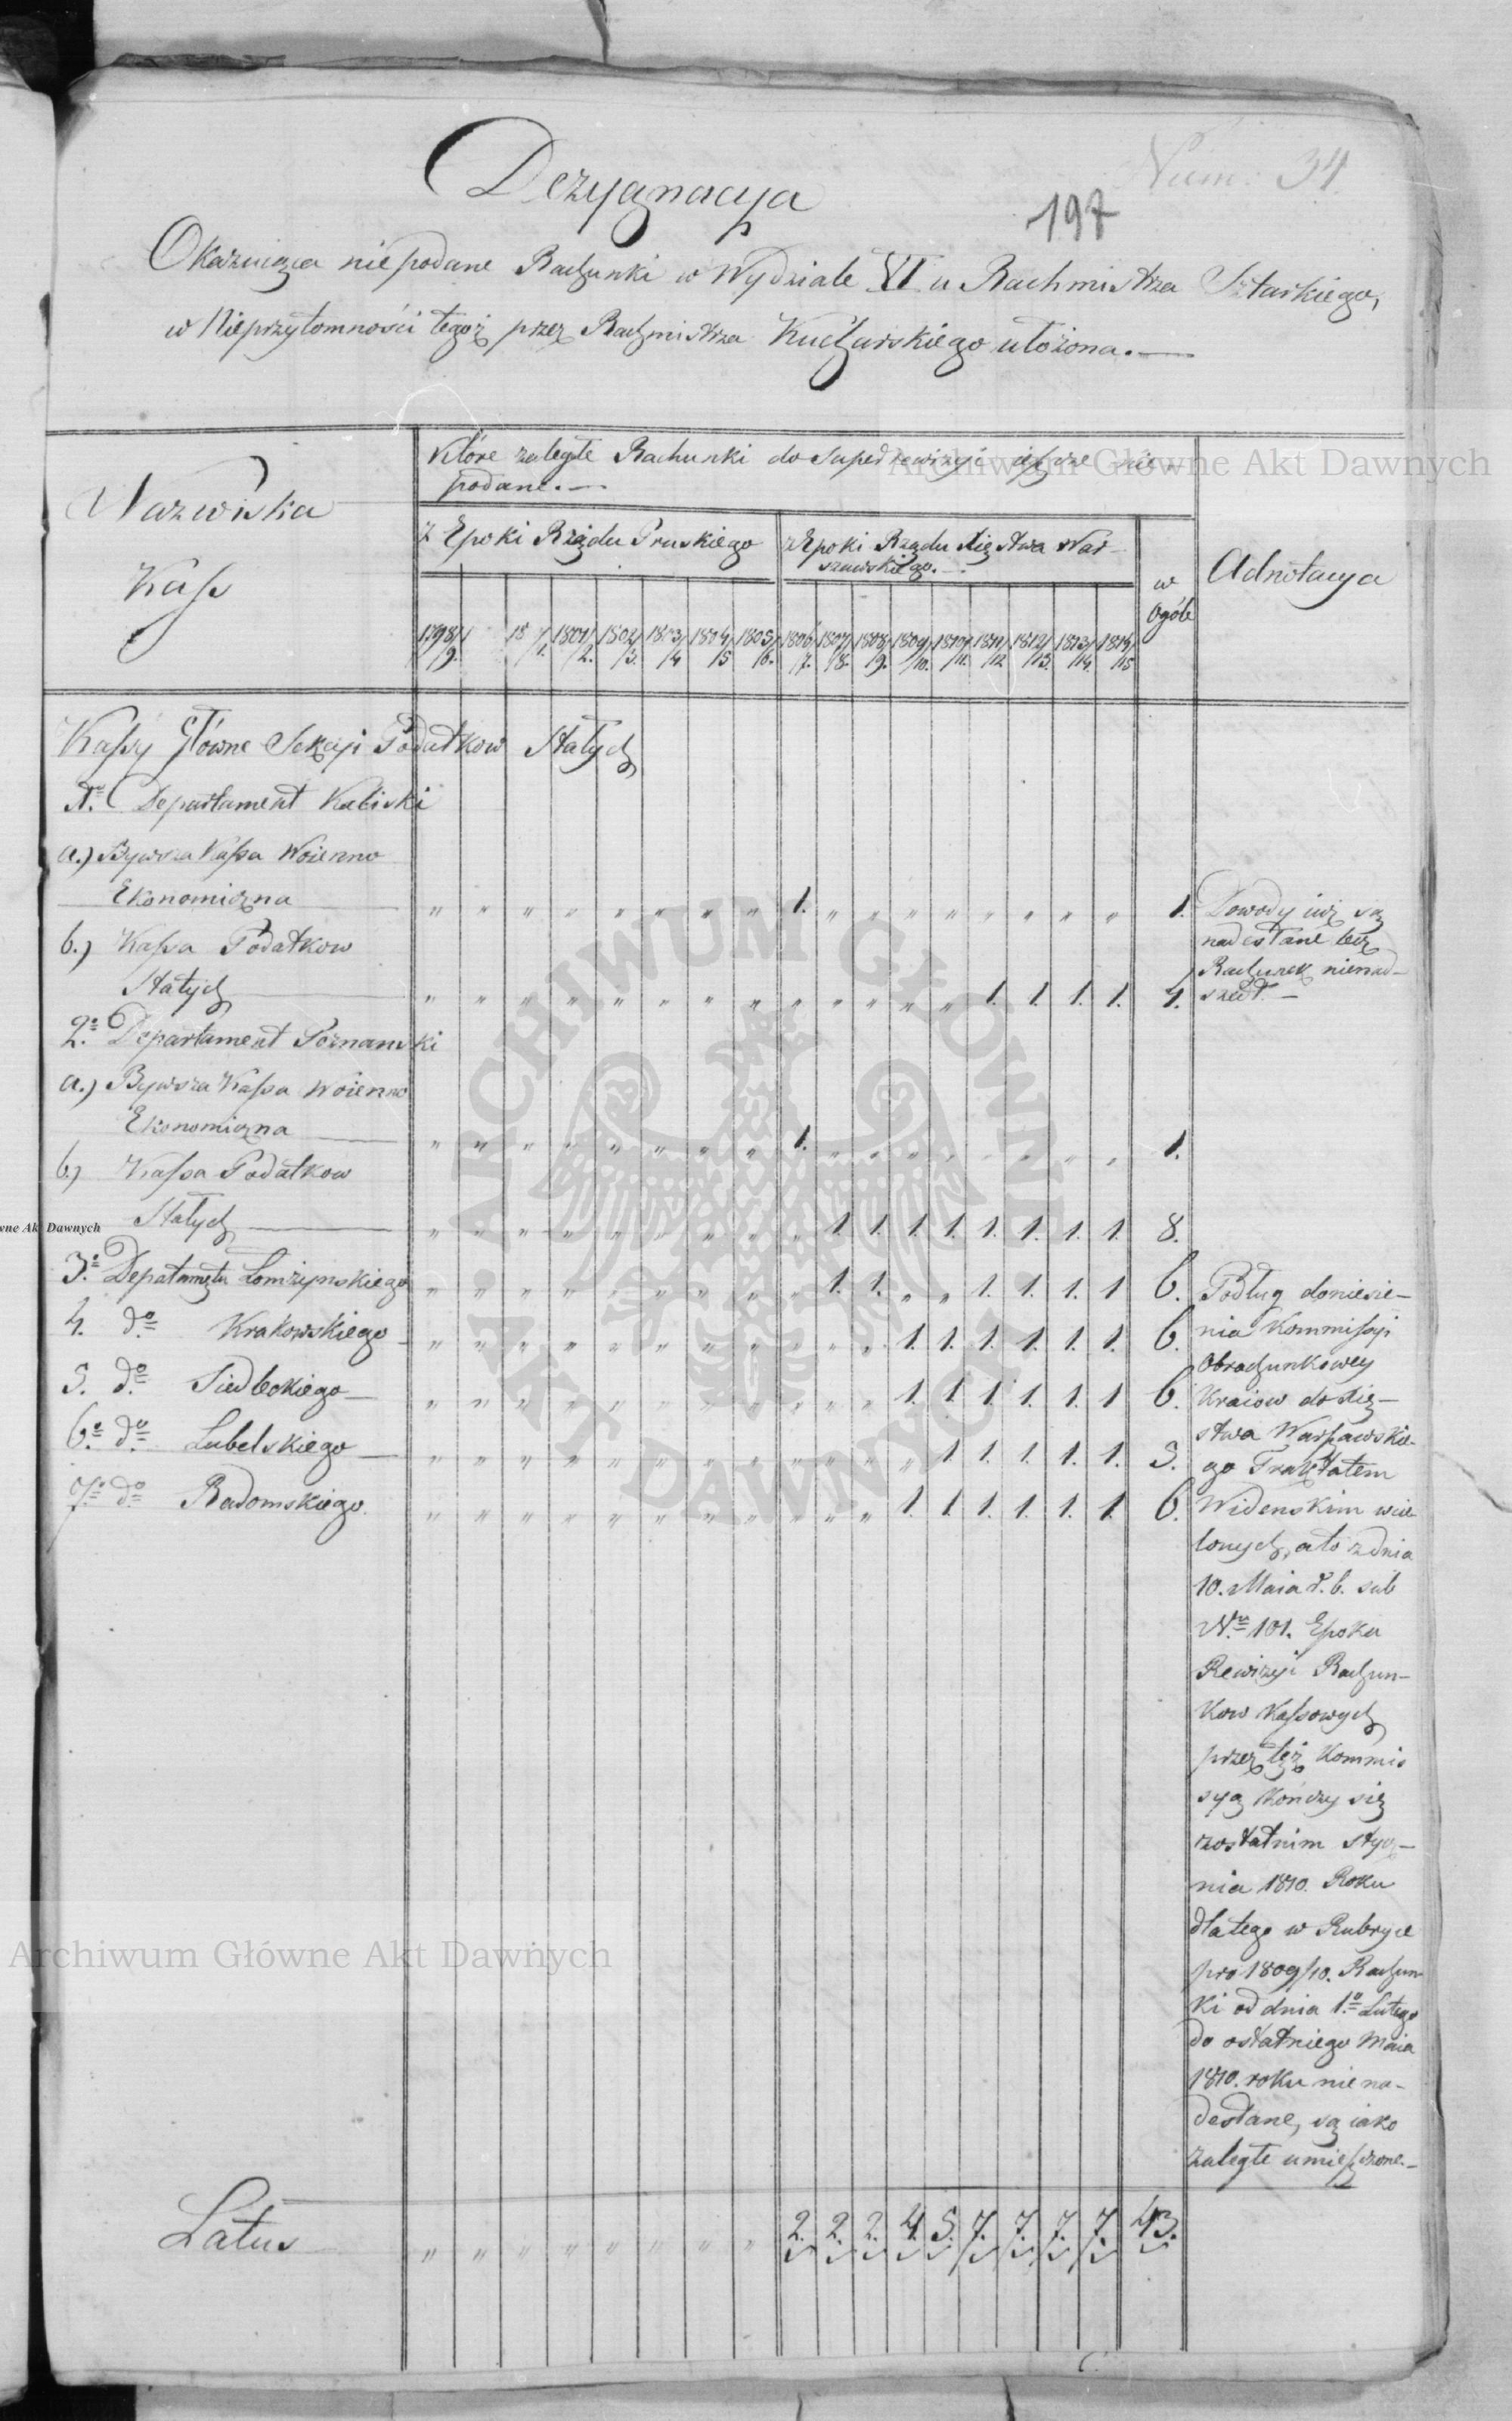 Num: 34.
197
Dezygnacya
Okazuiąca niepodane Rachunki w Wydziale VI u Rachmistrza Sztarkiego,
w Nieprzytomności tegoż przez Rachmistrza Kucharskiego ułożona. —
Nazwiska
Kass
Które zaległe Rachunki do Superrewizyi ieszcze nie
podane. —
z Epoki Rządu Pruskiego
z Epoki Rządu Xięstwa War-
szawskiego. —
w
Ogóle
Adnotacya
1798/9. 18 /1. 1801/2. 1802/3. 1803/4 1804/5 1805/6. 1806/7. 1807/8. 1808/9. 1809/10. 1810/11. 1811/12 1812/13. 1813/14. 1814/15
Kassy Główne Sekcyi Podatkow Stałych
Departament Kaliski
a.) Bywsza Kassa Woienno
Ekonomiczna — „ „ „ „ „ „ „ „ 1. „ „ „ „ „ „ „ „ 1.
b.) Kassa Podatkow
Stałych — „ „ „ „ „ „ „ „ „ „ „ „ „ 1. 1. 1. 1. 4.
2.o Departament Poznanski
a.) Bywsza Kassa Woienno
Ekonomiczna — „ „ „ „ „ „ „ „ 1. „ „ „ „ „ „ „ „ 1.
b.) Kassa Podatkow
Stałych — „ „ „ „ „ „ „ „ „ 1 1. 1. 1. 1. 1. 1. 1 8.
3.o Depatamętu Łomżynskiego „ „ „ „ „ „ „ „ „ 1. 1. „ „ 1. 1. 1. 1 6.
4. do Krakowskiego — „ „ „ „ „ „ „ „ „ „ „ 1. 1. 1. 1. 1. 1. 6
5. do Siedleckiego — „ „ „ „ „ „ „ „ „ „ „ 1. 1. 1. 1. 1. 1 6.
6.o do Lubelskiego — „ „ „ „ „ „ „ „ „ „ „ „ 1 1. 1. 1. 1. 5.
7.o do Radomskiego. „ „ „ „ „ „ „ „ „ „ „ 1. 1. 1. 1. 1. 1. 6.
Dowody iuż są
nadesłane lecz
Rachunek nienad-
szedł. —
Podług doniesie-
nia Kommissyi
Obrachunkowey
Kraiow do Xię-
stwa Warszawskie-
go Traktatem
Widenskim wcie-
lonych, a to z dnia
10. Maia r. b. sub
Nro 101. Epoka
Rewizyi Rachun-
kow Kassowych
przez też Kommis
syą kończy się
z ostatnim Stycz-
nia 1810. Roku
dla tego w Rubryce
pro 1809/10. Rachun-
ki od dnia 1.o Lutego
do ostatniego Maia
1810. roku niena-
desłane, są iako
zaległe umieszczone. —
Latus — „ „ „ „ „ „ „ „ 2. 2. 2. 4. 5. 7. 7. 7. 7. 43.
Archiwum Główne Akt Dawnych
Archiwum Główne Akt Dawnych
wne Akt Dawnych
ARCHIWUM GŁÓWNE · AKT DAWNYCH ·